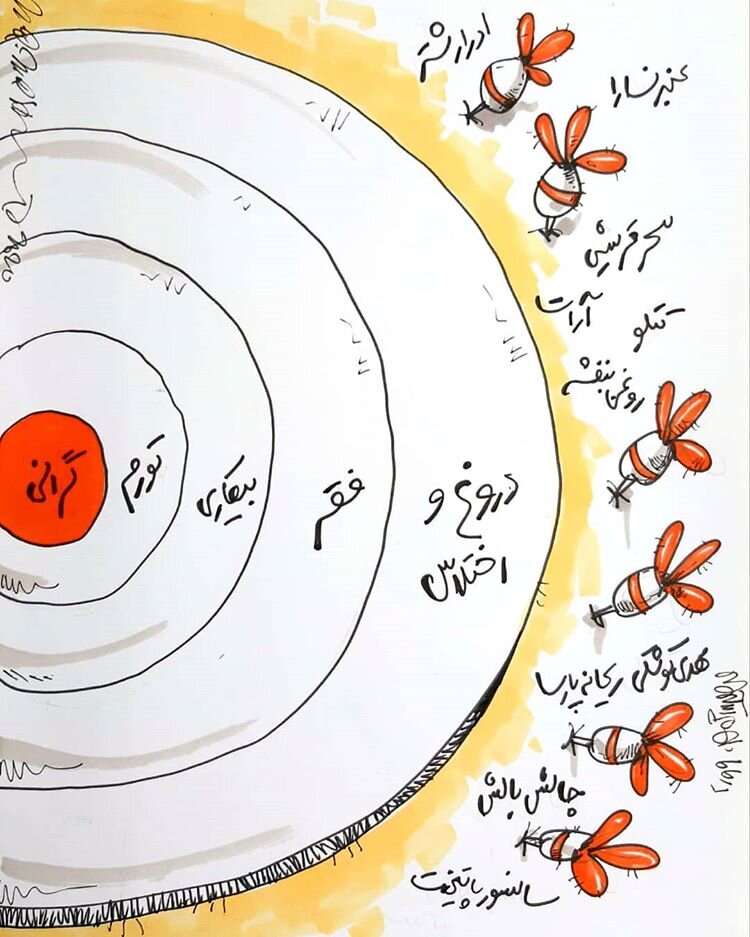 ادرار شتر
عنبر نسارا
سحر قریشی
آرات
تتلو
روغن بنفشه
گرانی
تورم
بیکاری
فقر
دروغ و
اختلاس
مهدی کوشکی ریحانه پارسا
چالش بالش
سانسور پایتخت